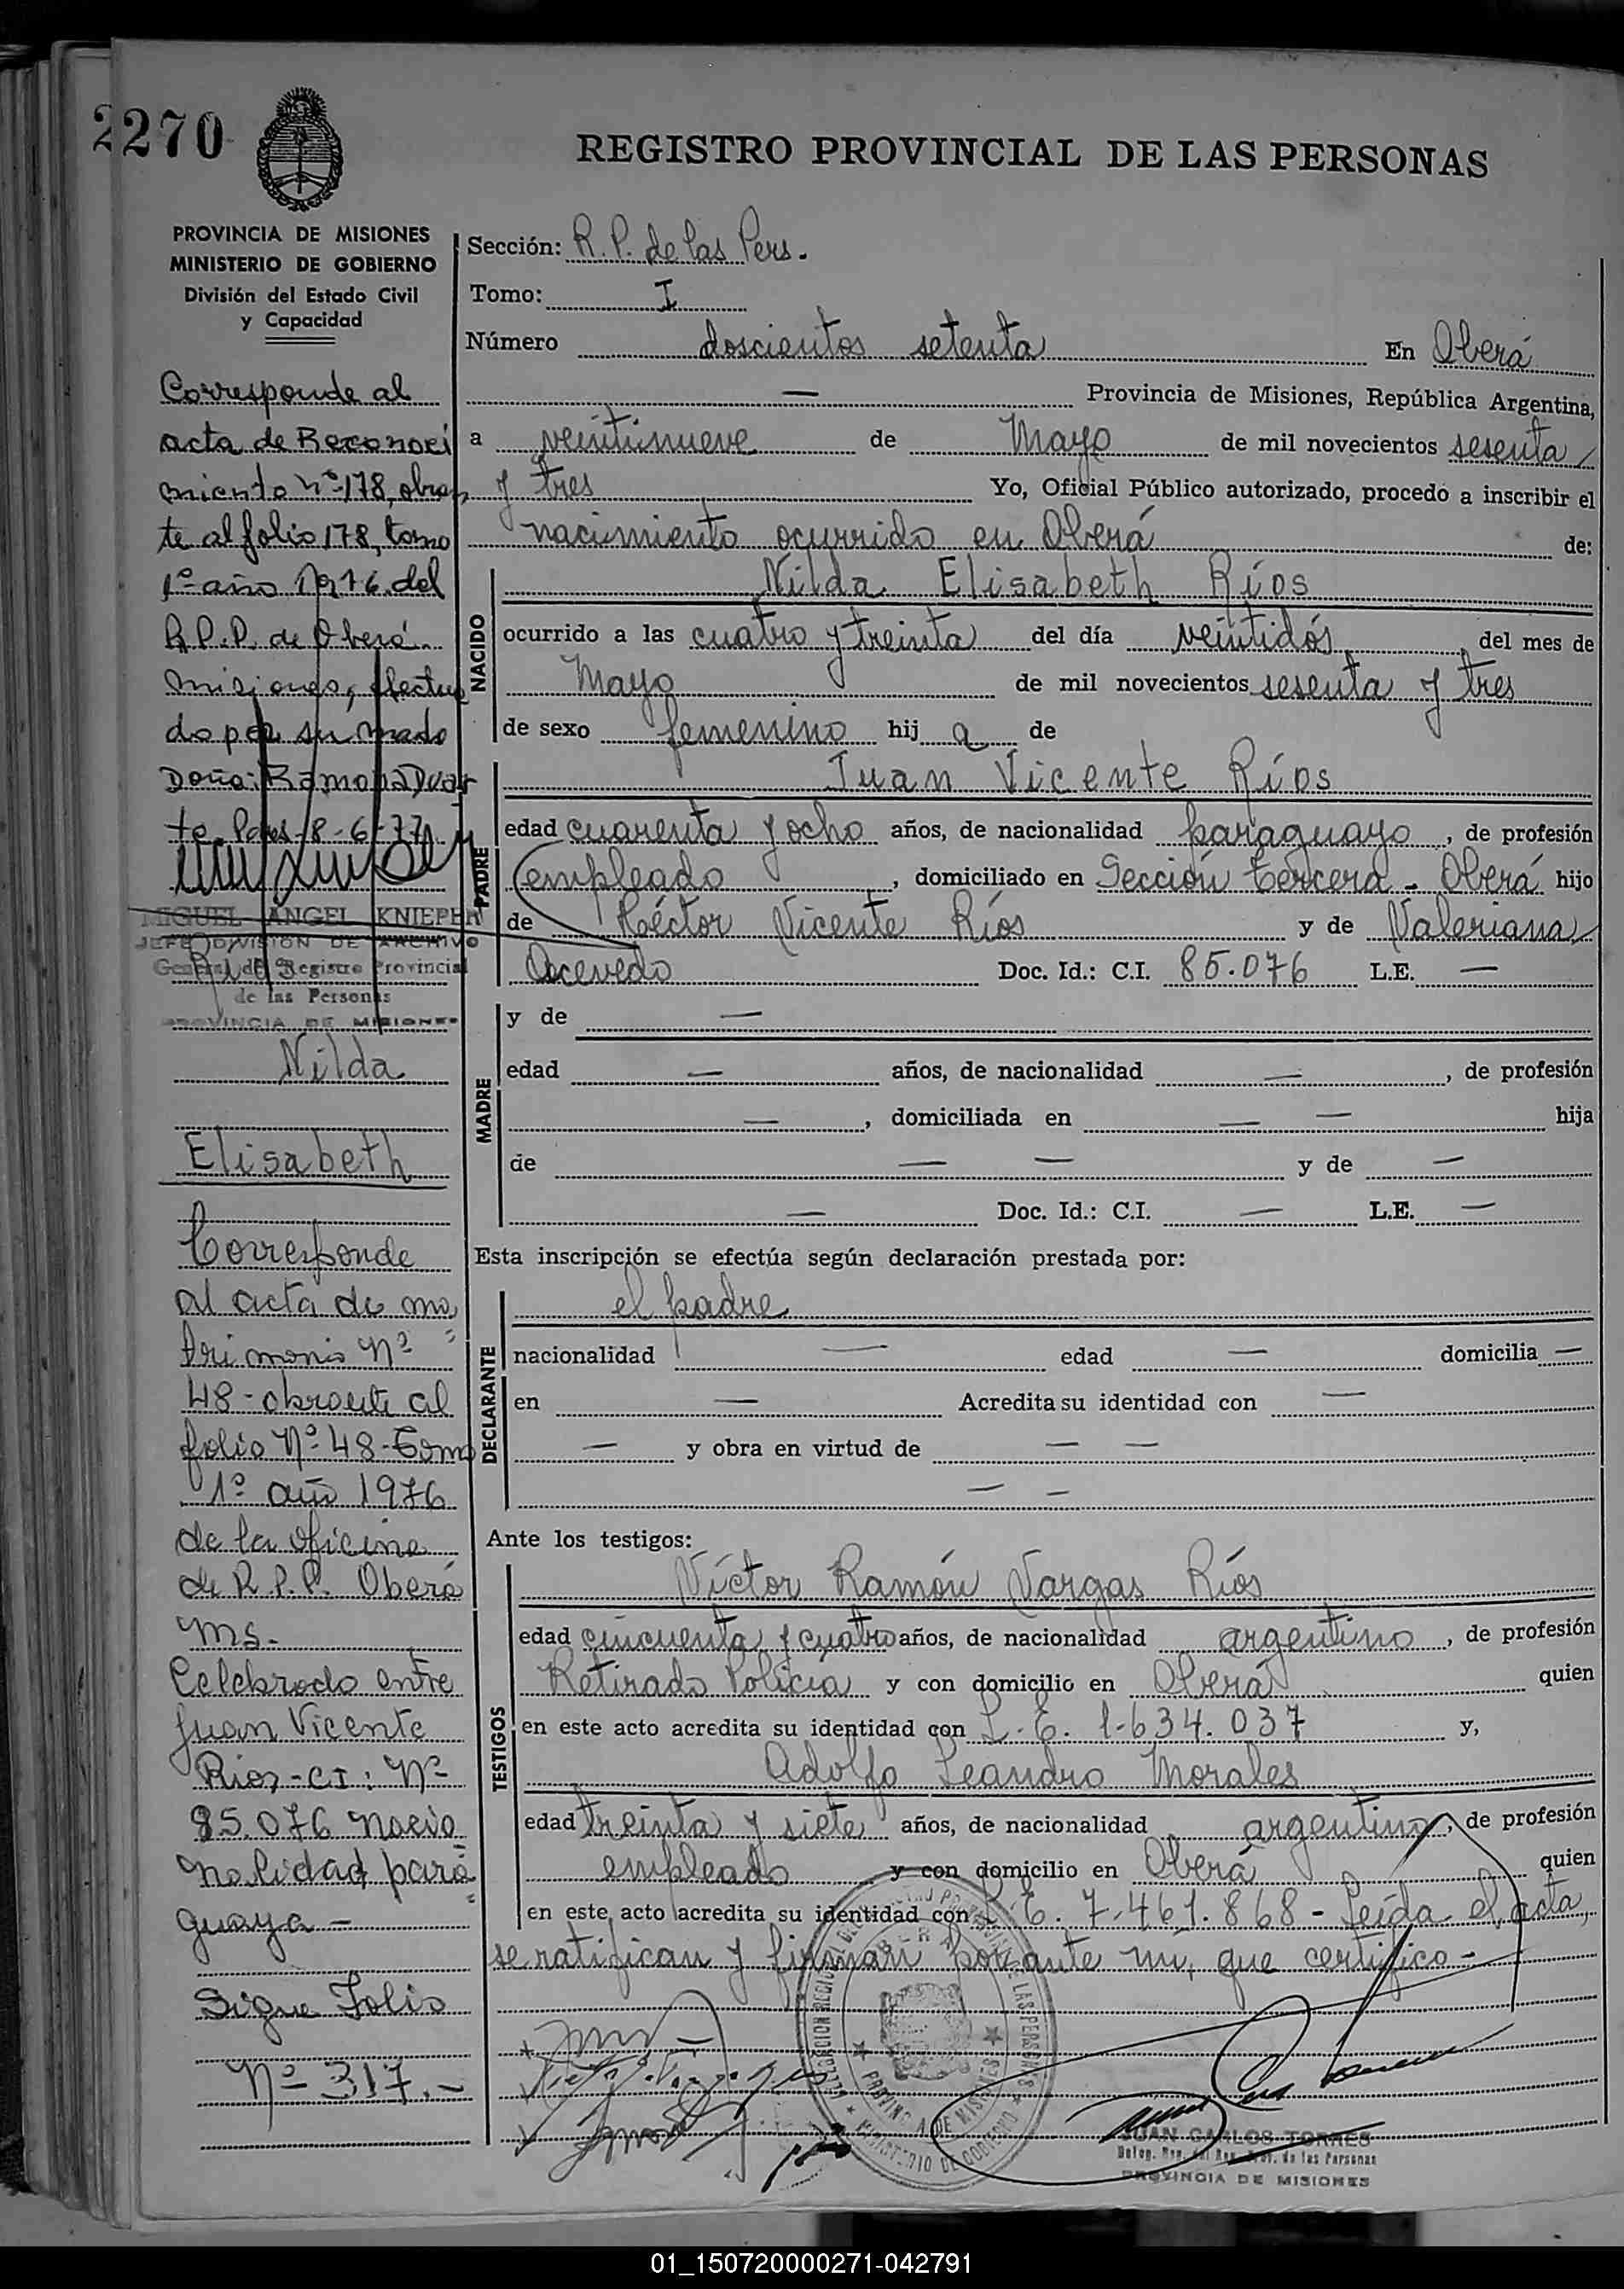 2270
REGISTRO PROVINCIAL DE LAS PERSONAS
PROVINCIA DE MISIONES
MINISTERIO DE GOBIERNO
División del Estado Civil
y Capacidad
Corresponde al
acta de Reconoci
miento Nº 178, obran
te al folio 178, tomo
1º año 1976 del
R.P.P. de Oberá
Misiones, efectua
do por su madre
Doña: Ramona Duar
te. Pdas-8-6-77
MIGUEL ANGEL KNIEPER
JEFE DIVISION DE ARCHIVO
General del Registro Provincial
de las Personas
PROVINCIA DE MISIONES
Ríos
Nilda
Elisabeth
Corresponde
al acta de ma
trimonio Nº
48-obrante al
folio Nº 48-Tomo
1º año 1976
de la oficina
de R.P.P. Oberá
Ms.
Celebrado entre
Juan Vicente
Rios-CI: Nº
85.076 nacio
nalidad para
guaya -
Sigue Folio
Nº 317.-
Sección: R.P. de las Pers.
Tomo: I
Número doscientos setenta En Oberá
— Provincia de Misiones, República Argentina,
a veintinueve de Mayo de mil novecientos sesenta
y tres Yo, Oficial Público autorizado, procedo a inscribir el
nacimiento ocurrido en Oberá de:
NACIDO
Nilda Elisabeth Ríos
ocurrido a las cuatro y treinta del día veintidós, del mes de
Mayo de mil novecientos sesenta y tres
de sexo femenino hij a de
PADRE
Juan Vicente Ríos
edad cuarenta y ocho años, de nacionalidad paraguayo, de profesión
empleado, domiciliado en Sección tercera - Oberá hijo
de Héctor Vicente Ríos y de Valeriana
Acevedo Doc. Id.: C.I. 85.076 L.E. —
MADRE
y de —
edad — años, de nacionalidad —, de profesión
—, domiciliada en — — hija
de — — y de —
— Doc. Id.: C.I. — L.E. —
Esta inscripción se efectúa según declaración prestada por:
DECLARANTE
el padre
nacionalidad — edad — domicilia —
en — Acredita su identidad con —
— y obra en virtud de — —
— —
Ante los testigos:
TESTIGOS
Víctor Ramón Vargas Ríos
edad cincuenta y cuatro años, de nacionalidad argentino, de profesión
Retirado Policia y con domicilio en Oberá quien
en este acto acredita su identidad con L.E. 1.634.037 y,
Adolfo Leandro Morales
edad treinta y siete años, de nacionalidad argentino, de profesión
empleado y con domicilio en Oberá quien
en este acto acredita su identidad con L.E. 7.461.868 - Leída el acta,
se ratifican y firman por ante mí, que certifico -
PROVINCIA DE MISIONES
MINISTERIO DE GOBIERNO
JUAN CARLOS TORRES
de las Personas
PROVINCIA DE MISIONES
01_150720000271-042791